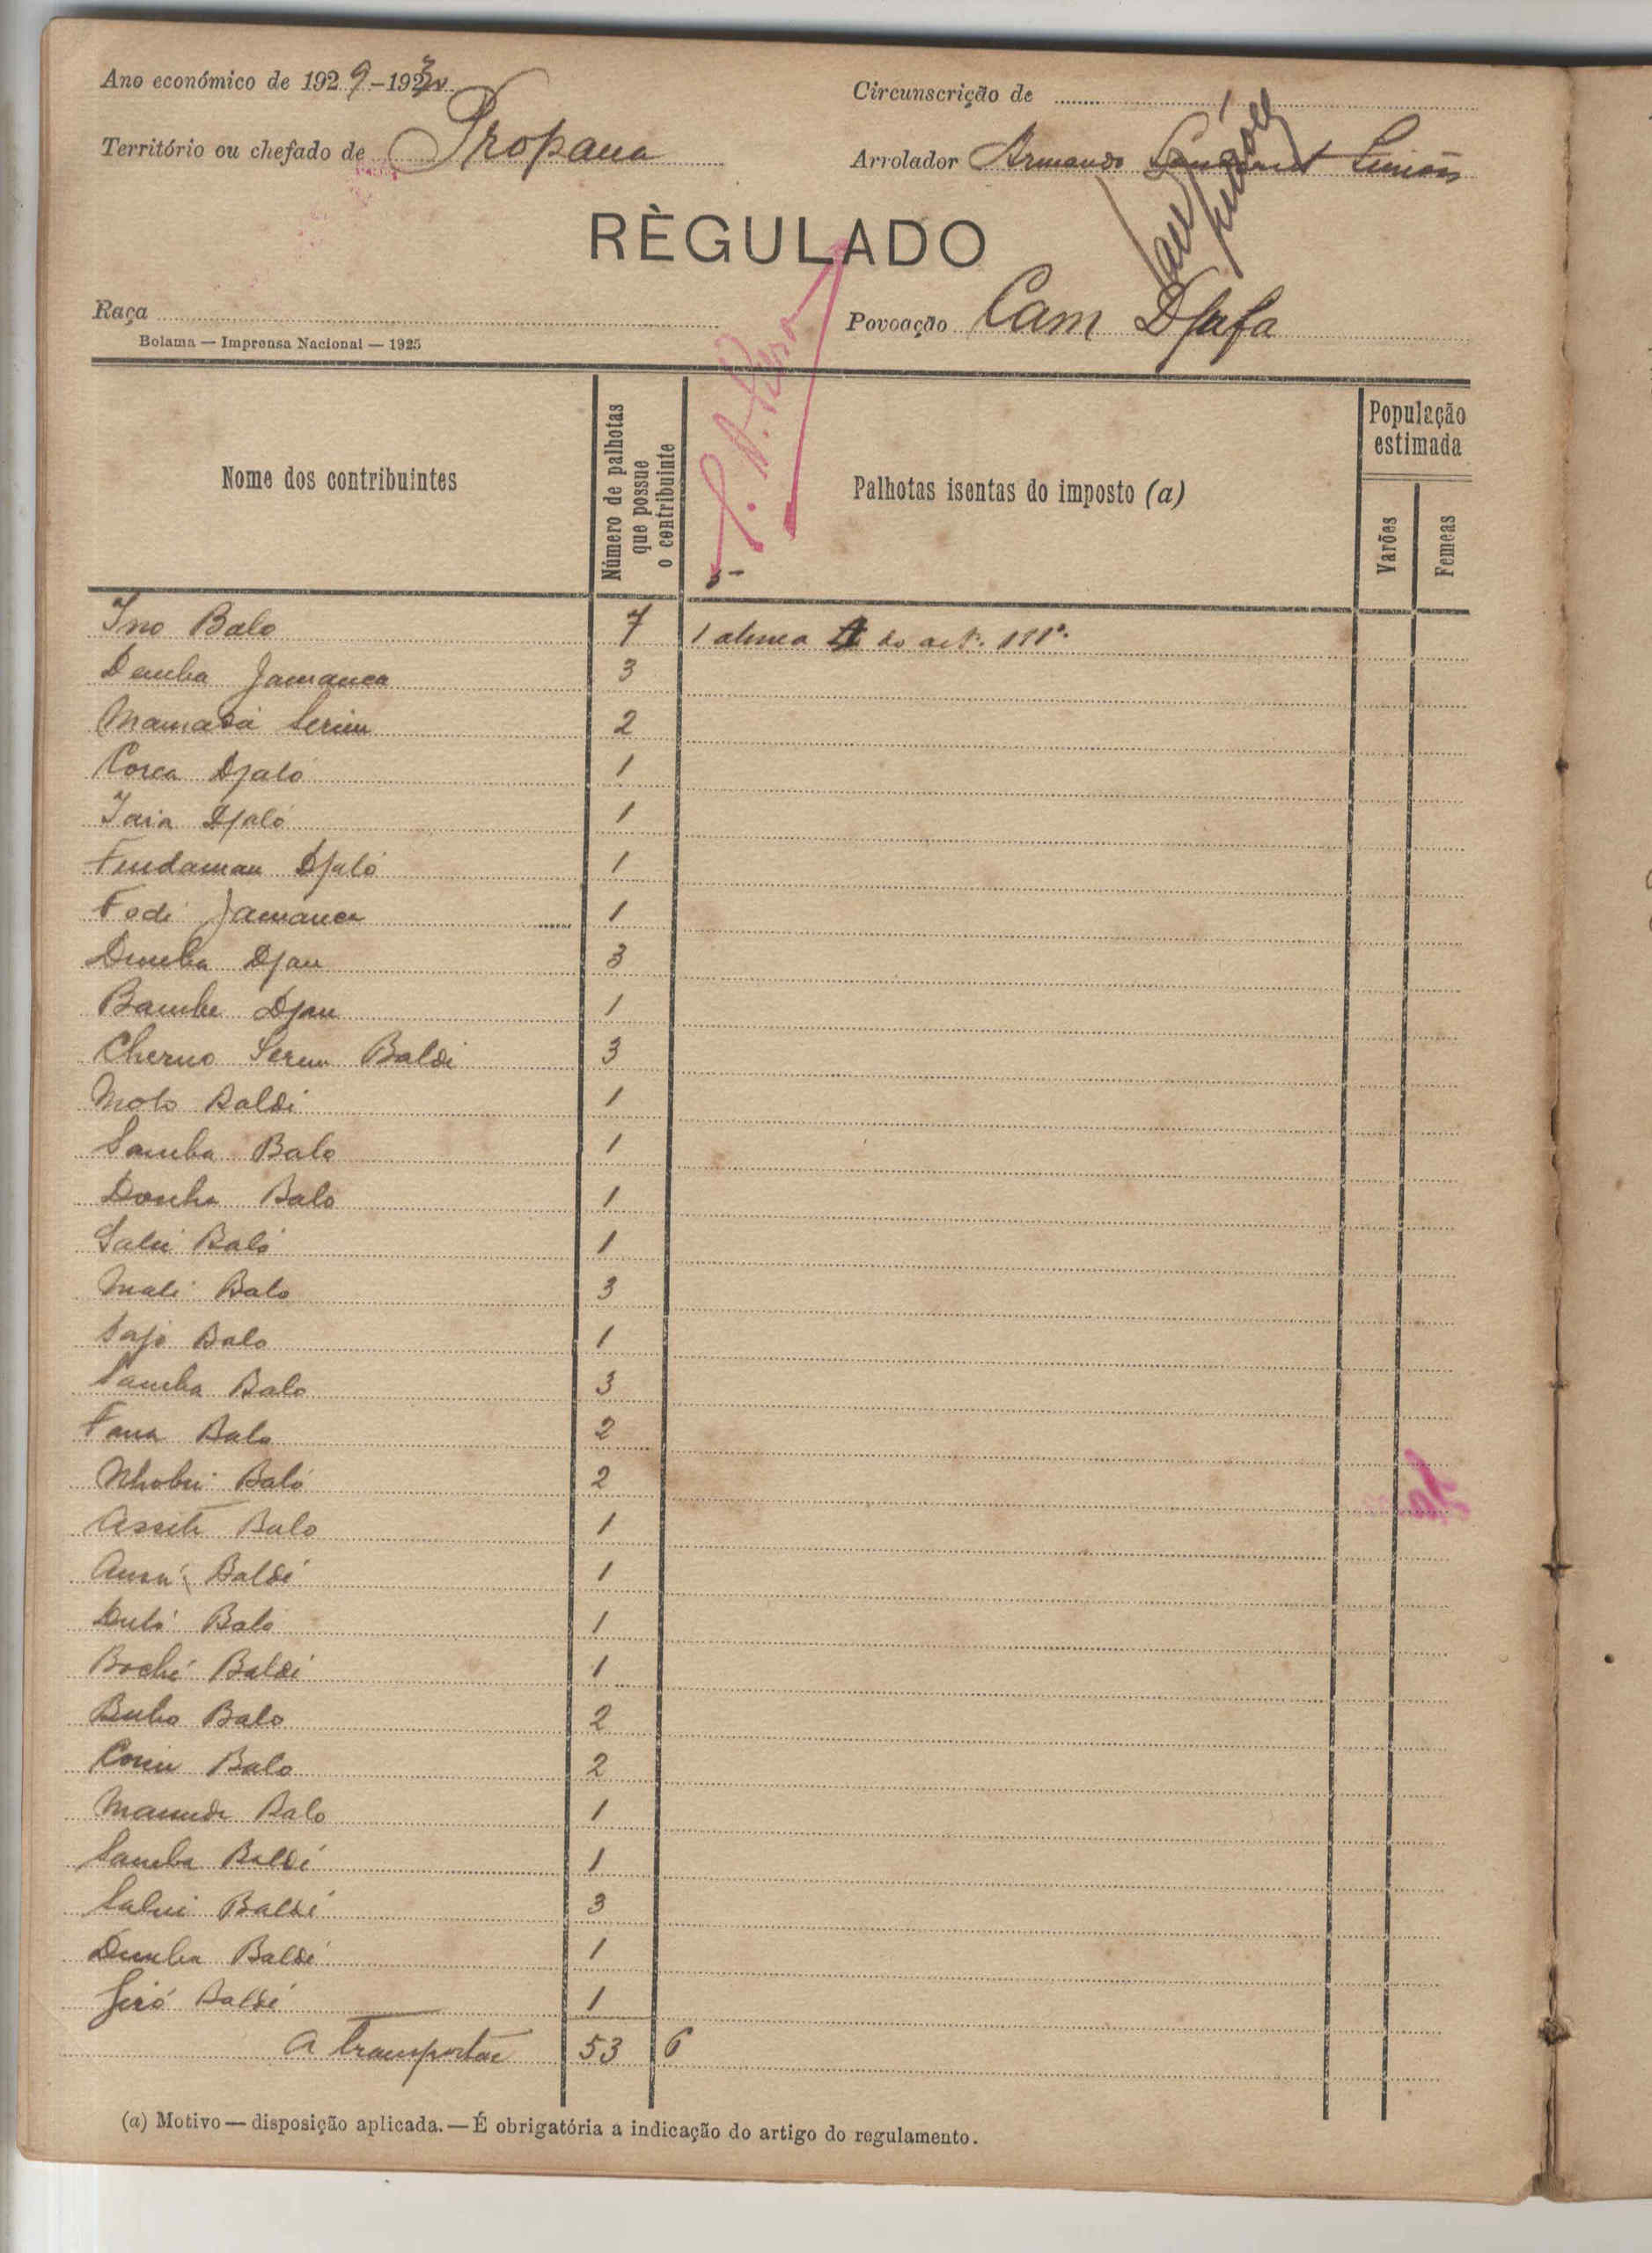 Ano económico de 1929-1930
Circunscrição de
Território ou chefado de Propana
Arrolador Armando Simões
RÈGULADO
Raça
Povoação Cam Djafa
Bolama — Imprensa Nacional — 1925
Nome dos contribuintes
Número de palhotas que possue o contribuinte
Palhotas isentas do imposto (a)
População estimada
Varões
Femeas
5
Ino Balo 7 1 alinea A do artº. 111º.
Demba Jamanca 3
Mamadá Serim 2
Corca Djaló 1
Iaia Djaló 1
Fendaman Djaló 1
Fodi Jamanca 1
Demba Djau 3
Bambe Djau 1
Cherno Serim Baldi 3
Molo Baldi 1
Samba Balo 1
Demba Balo 1
Galé Baló 1
Mali Balo 3
Sajo Balo 1
Samba Balo 3
Fana Balo 2
Nhobu Baló 2
Asseti Balo 1
Baldé 1
Duló Balo 1
Boché Baldé 1
Bubo Balo 2
Balo 2
Balo 1
Samba Baldé 1
Baldé 3
Demba Baldé 1
Giró Baldé 1
A transportar 53 6
(a) Motivo — disposição aplicada. — É obrigatória a indicação do artigo do regulamento.